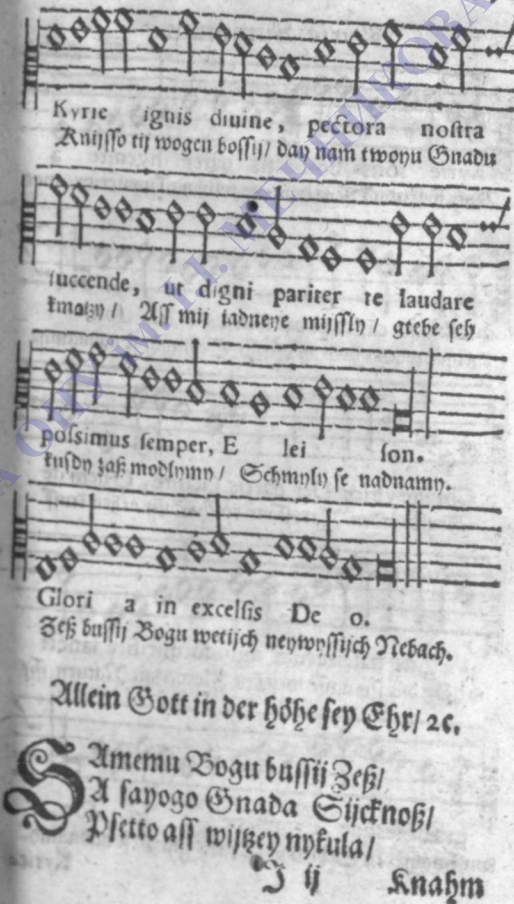 Kyrie ignis diuine, pectora nostra
Knijsso tij wogen bossij/ day nam twoyu Gnadu
succende, ut digni pariter te laudare
kmatzy / Ass mij iadneye mijssly / gtebe seh
possimus semper, E lei son.
kusdy zaß modlymy / Schmyly se nadnamy.
Glori a in excelsis De o.
Zeß bussij Bogu wetijch neywyssijch Nebach.
Allein Gott in der höhe sey Ehr/ 2c.
SAmemu Bogu bussij Zeß/
A sayogo Gnada Sijcknoß/
Psetto ass wijtzey nykula/
J ij Knahm